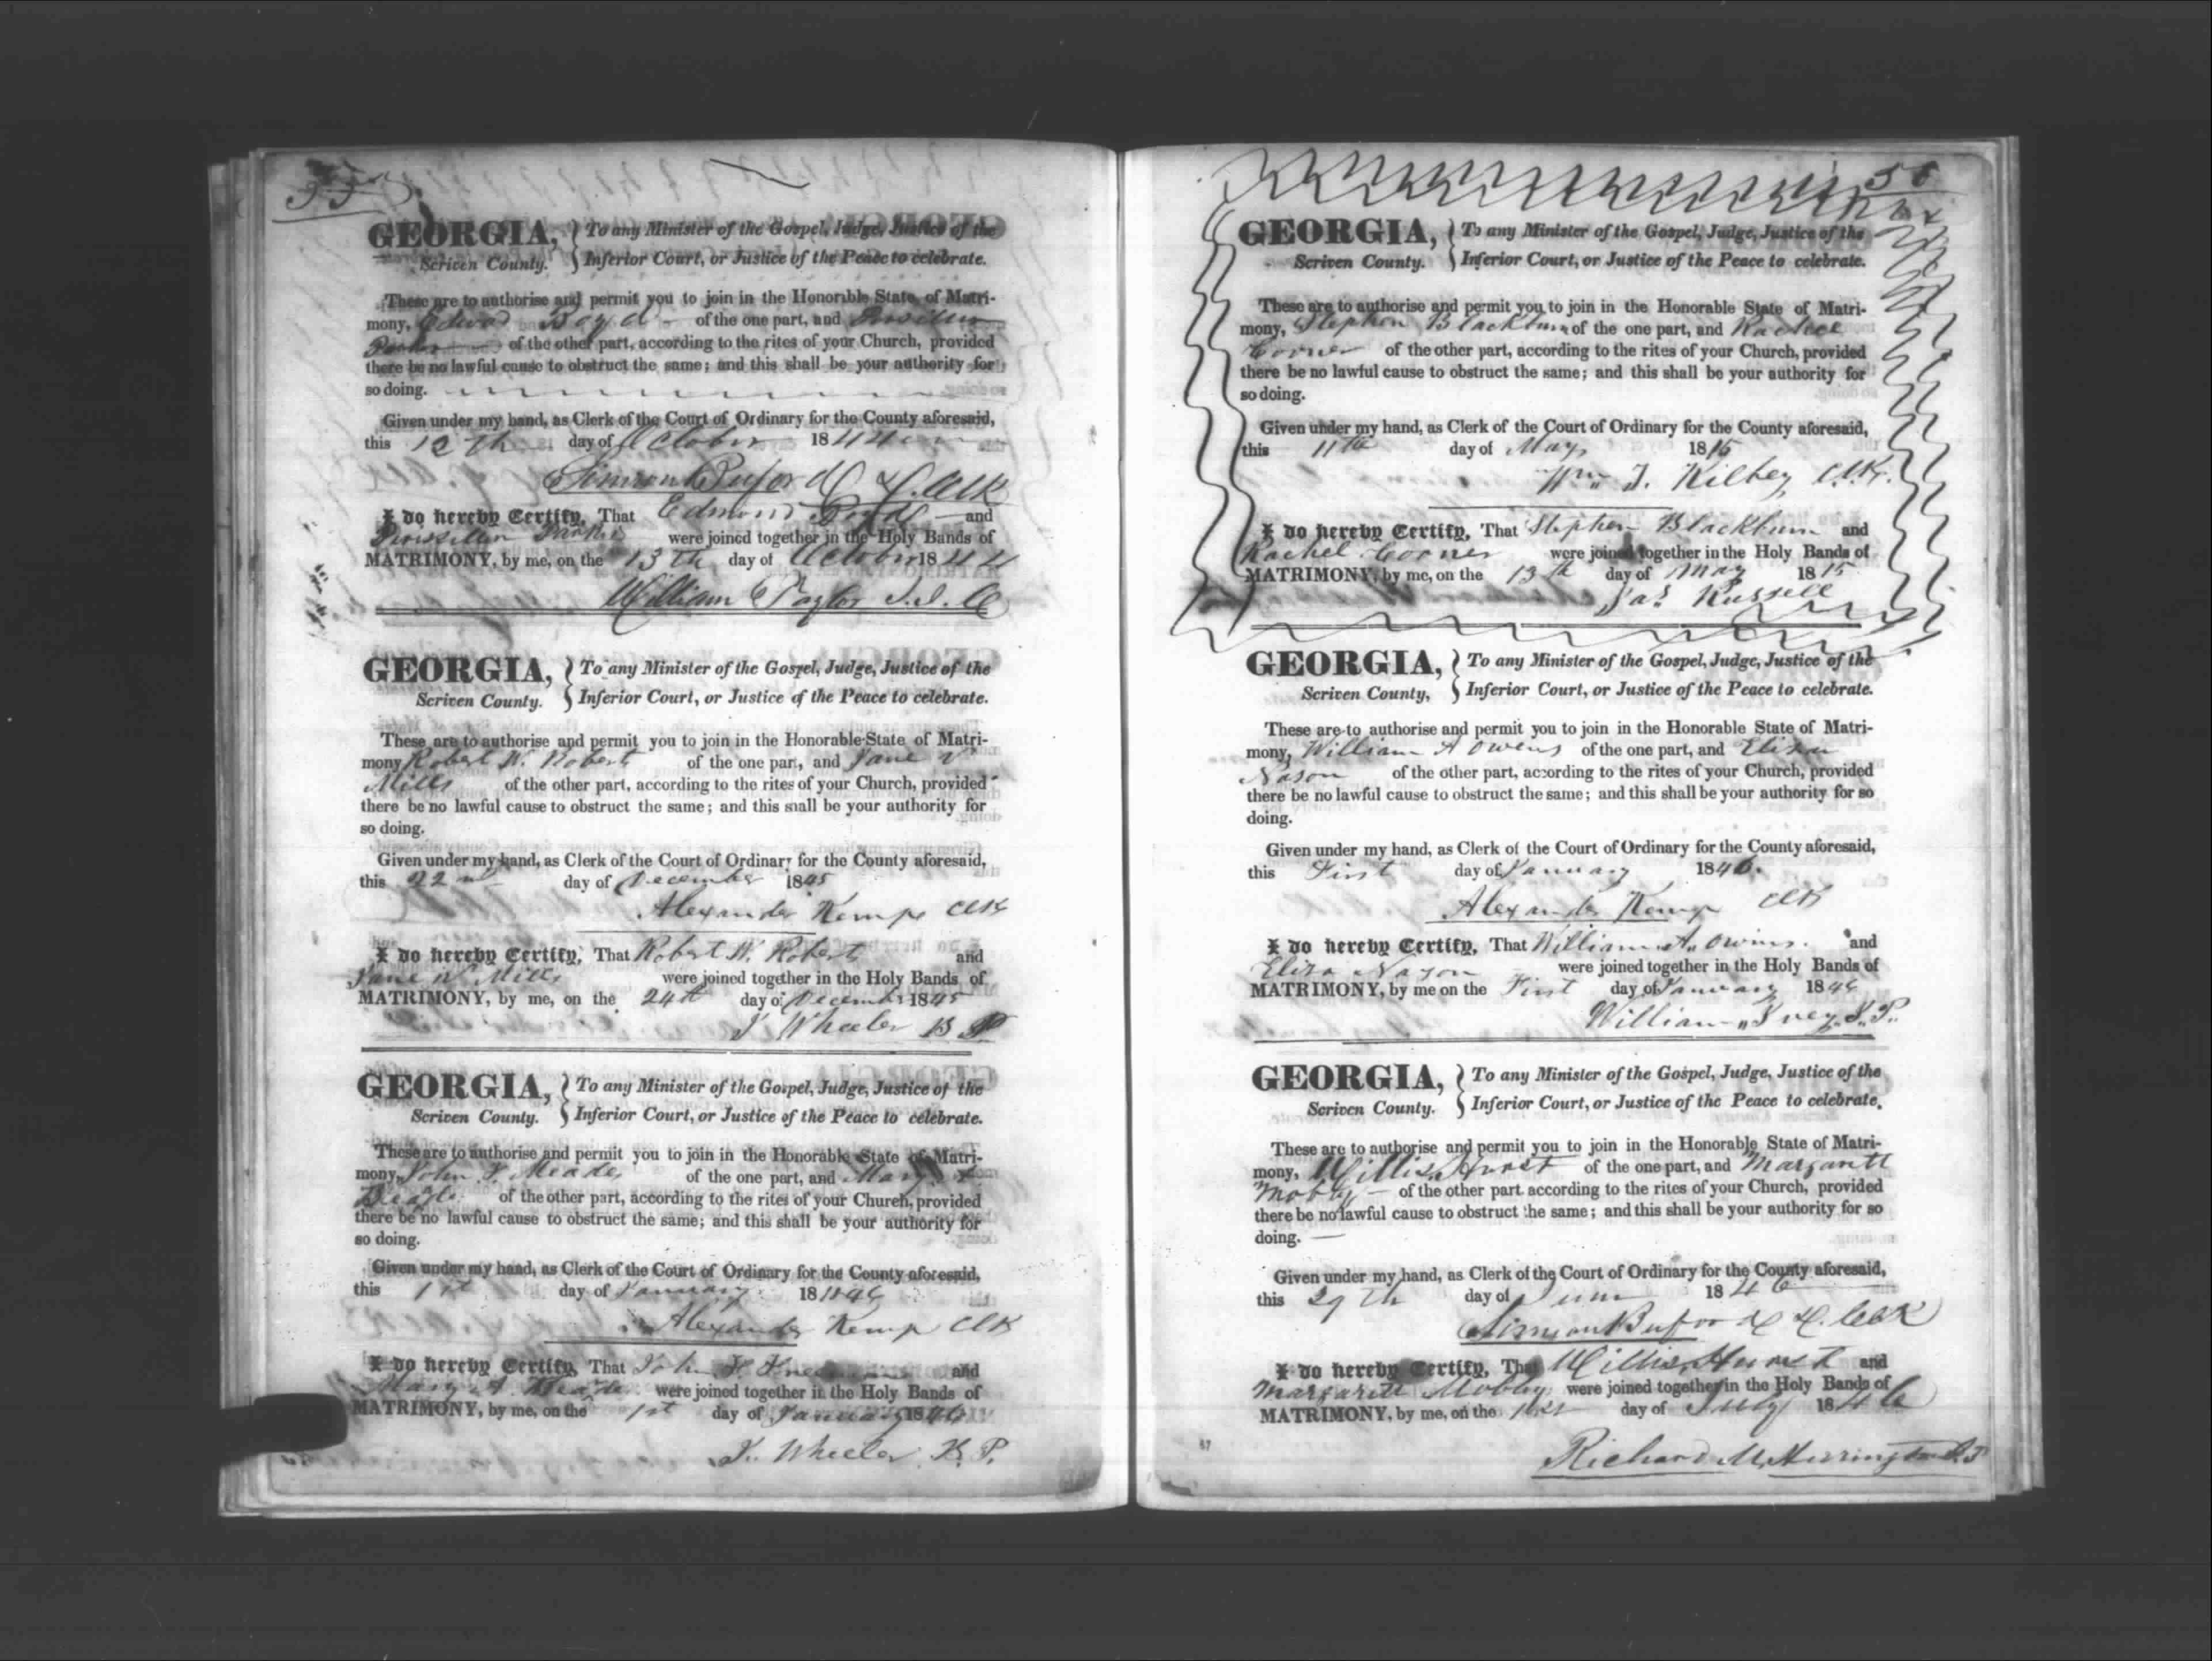 55
GEORGIA, } To any Minister of the Gospel, Judge, Justice of the
Scriven County. } Inferior Court, or Justice of the Peace to celebrate.
These are to authorise and permit you to join in the Honorable State of Matri-
mony, Edwod Boyd of the one part, and
of the other part, according to the rites of your Church, provided
there be no lawful cause to obstruct the same; and this shall be your authority for
so doing.
Given under my hand, as Clerk of the Court of Ordinary for the County aforesaid,
this 12th day of October 1844
Simeon Buford Clerk
I do hereby Certify, That Edmond Boyd and
were joined together in the Holy Bands of
MATRIMONY, by me, on the 13th day of October 1844
William Taylor J.I.C
GEORGIA, } To any Minister of the Gospel, Judge, Justice of the
Scriven County. } Inferior Court, or Justice of the Peace to celebrate.
These are to authorise and permit you to join in the Honorable State of Matri-
mony Robert W. Robert of the one part, and Jane V
Mills of the other part, according to the rites of your Church, provided
there be no lawful cause to obstruct the same; and this shall be your authority for
so doing.
Given under my hand, as Clerk of the Court of Ordinary for the County aforesaid,
this 22nd day of December 1845
Alexander Kemp Clk
I do hereby Certify, That Robert W. Robert and
Jane V Mills were joined together in the Holy Bands of
MATRIMONY, by me, on the 24th day of December 1845
J Wheeler B P
GEORGIA, } To any Minister of the Gospel, Judge, Justice of the
Scriven County. } Inferior Court, or Justice of the Peace to celebrate.
These are to authorise and permit you to join in the Honorable State of Matri-
mony, John F. Meade of the one part, and Mary A
of the other part, according to the rites of your Church, provided
there be no lawful cause to obstruct the same; and this shall be your authority for
so doing.
Given under my hand, as Clerk of the Court of Ordinary for the County aforesaid,
this 1st day of January 181846
Alexander Kemp Clk
I do hereby Certify, That John F. and
Mary A. were joined together in the Holy Bands of
MATRIMONY, by me, on the 1st day of January 1846
J. Wheeler B. P.
56
GEORGIA, } To any Minister of the Gospel, Judge, Justice of the
Scriven County. } Inferior Court, or Justice of the Peace to celebrate.
These are to authorise and permit you to join in the Honorable State of Matri-
mony, Stephen Blackburn of the one part, and Rachel
Corner of the other part, according to the rites of your Church, provided
there be no lawful cause to obstruct the same; and this shall be your authority for
so doing.
Given under my hand, as Clerk of the Court of Ordinary for the County aforesaid,
this 11th day of May 1815
Wm J. Kilbey, Clk.
I do hereby Certify, That Stephen Blackburn and
Rachel Corner were joined together in the Holy Bands of
MATRIMONY, by me, on the 13th day of May 1815
Jas Russell
GEORGIA, } To any Minister of the Gospel, Judge, Justice of the
Scriven County, } Inferior Court, or Justice of the Peace to celebrate.
These are to authorise and permit you to join in the Honorable State of Matri-
mony, William A Owens of the one part, and Eliza
Nason of the other part, according to the rites of your Church, provided
there be no lawful cause to obstruct the same; and this shall be your authority for so
doing.
Given under my hand, as Clerk of the Court of Ordinary for the County aforesaid,
this First day of January 1846.
Alexander Kemp Clk
I do hereby Certify, That William A. Owins. and
Eliza Nason were joined together in the Holy Bands of
MATRIMONY, by me on the First day of January 1846
William Ivey J. P.
GEORGIA, } To any Minister of the Gospel, Judge, Justice of the
Scriven County. } Inferior Court, or Justice of the Peace to celebrate.
These are to authorise and permit you to join in the Honorable State of Matri-
mony, Willis Hurst of the one part, and Margarett
Mobly of the other part according to the rites of your Church, provided
there be no lawful cause to obstruct the same; and this shall be your authority for so
doing.
Given under my hand, as Clerk of the Court of Ordinary for the County aforesaid,
this 29th day of June 1846
Simeon Buford Clerk
I do hereby Certify, That Willis Hurst and
Margarett Mobly were joined together in the Holy Bands of
MATRIMONY, by me, on the day of July 1846
Richard M. Herrington J.P
67